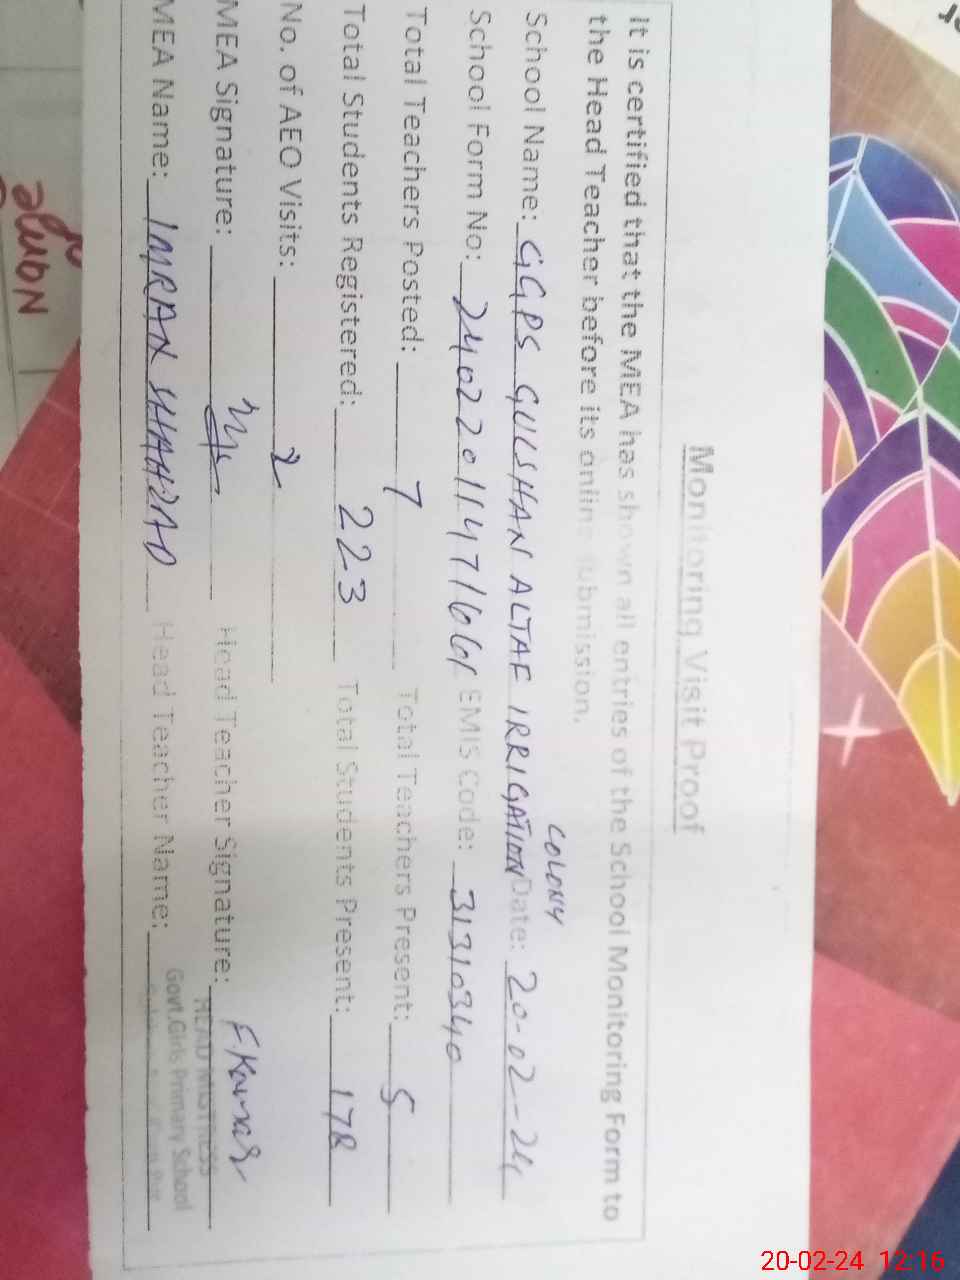 Monitoring Visit Proof
It is certified that the MEA has shown all entries of the School Monitoring Form to
the Head Teacher before its online submission.
School Name: GGPS GULSHAN ALTAF IRRIGATION COLONY Date: 20-02-24
School Form No: EMIS Code: 31310340
Total Teachers Posted: 7 Total Teachers Present: 5
Total Students Registered: 223 Total Students Present: 178
No. of AEO Visits: 2
MEA Signature: Head Teacher Signature:
HEAD MISTRESS
MEA Name: IMRAN SHAHZAD Head Teacher Name:
Govt.Girls Primary School
Name
20-02-24 12:16